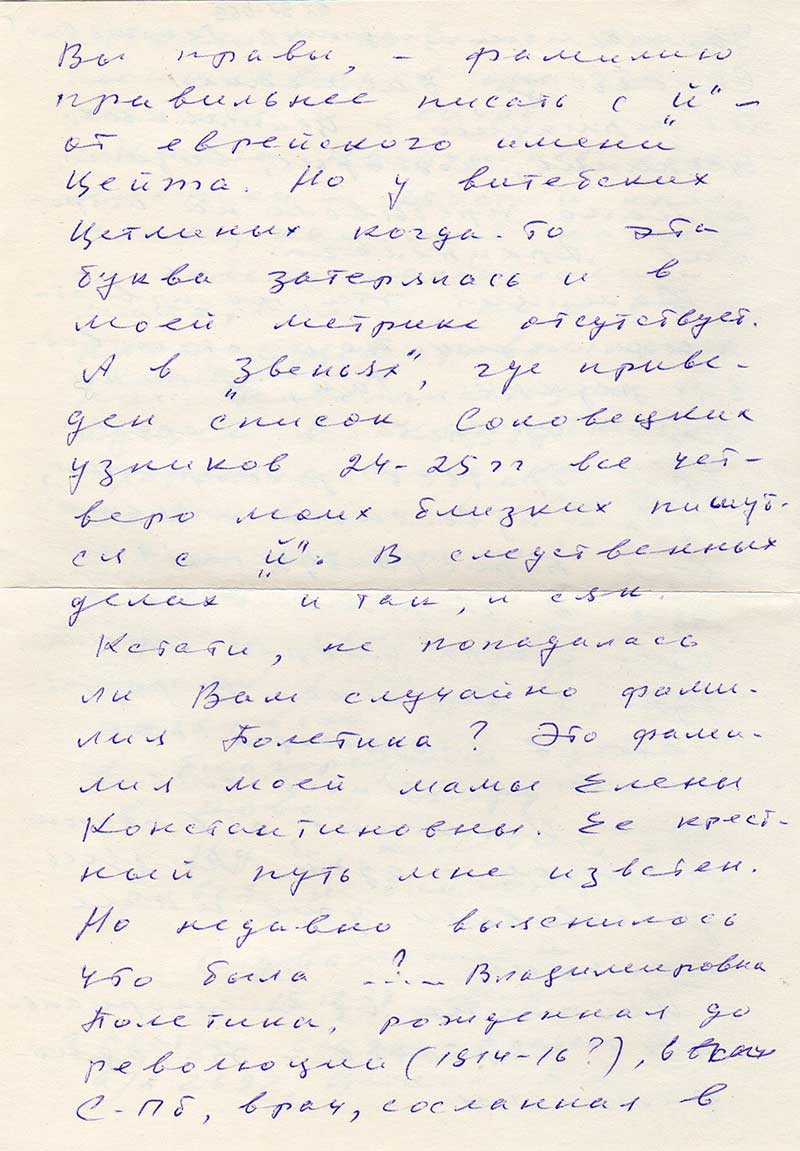 Вы правы, – фамилию
правильнее писать с „й“ –
от еврейского имени
Цейта. Но у витебских
Цетлиных когда-то эта
буква затерялась и в
моей метрике отсутствует.
А в „Звеньях“, где приве-
ден список Соловецких
узников 24-25 гг все чет-
веро моих близких пишут-
ся с „й“. В следственных
делах и так, и сяк.
Кстати, не попадалась
ли Вам случайно фами-
лия Полетика? Это фами-
лия моей мамы Елены
Константиновны. Ее крест-
ный путь мне известен.
Но недавно выяснилось
что была ..?.. Владимировна
Полетика, рожденная до
революции (1914-16?), в
С-Пб, врач, сосланная в